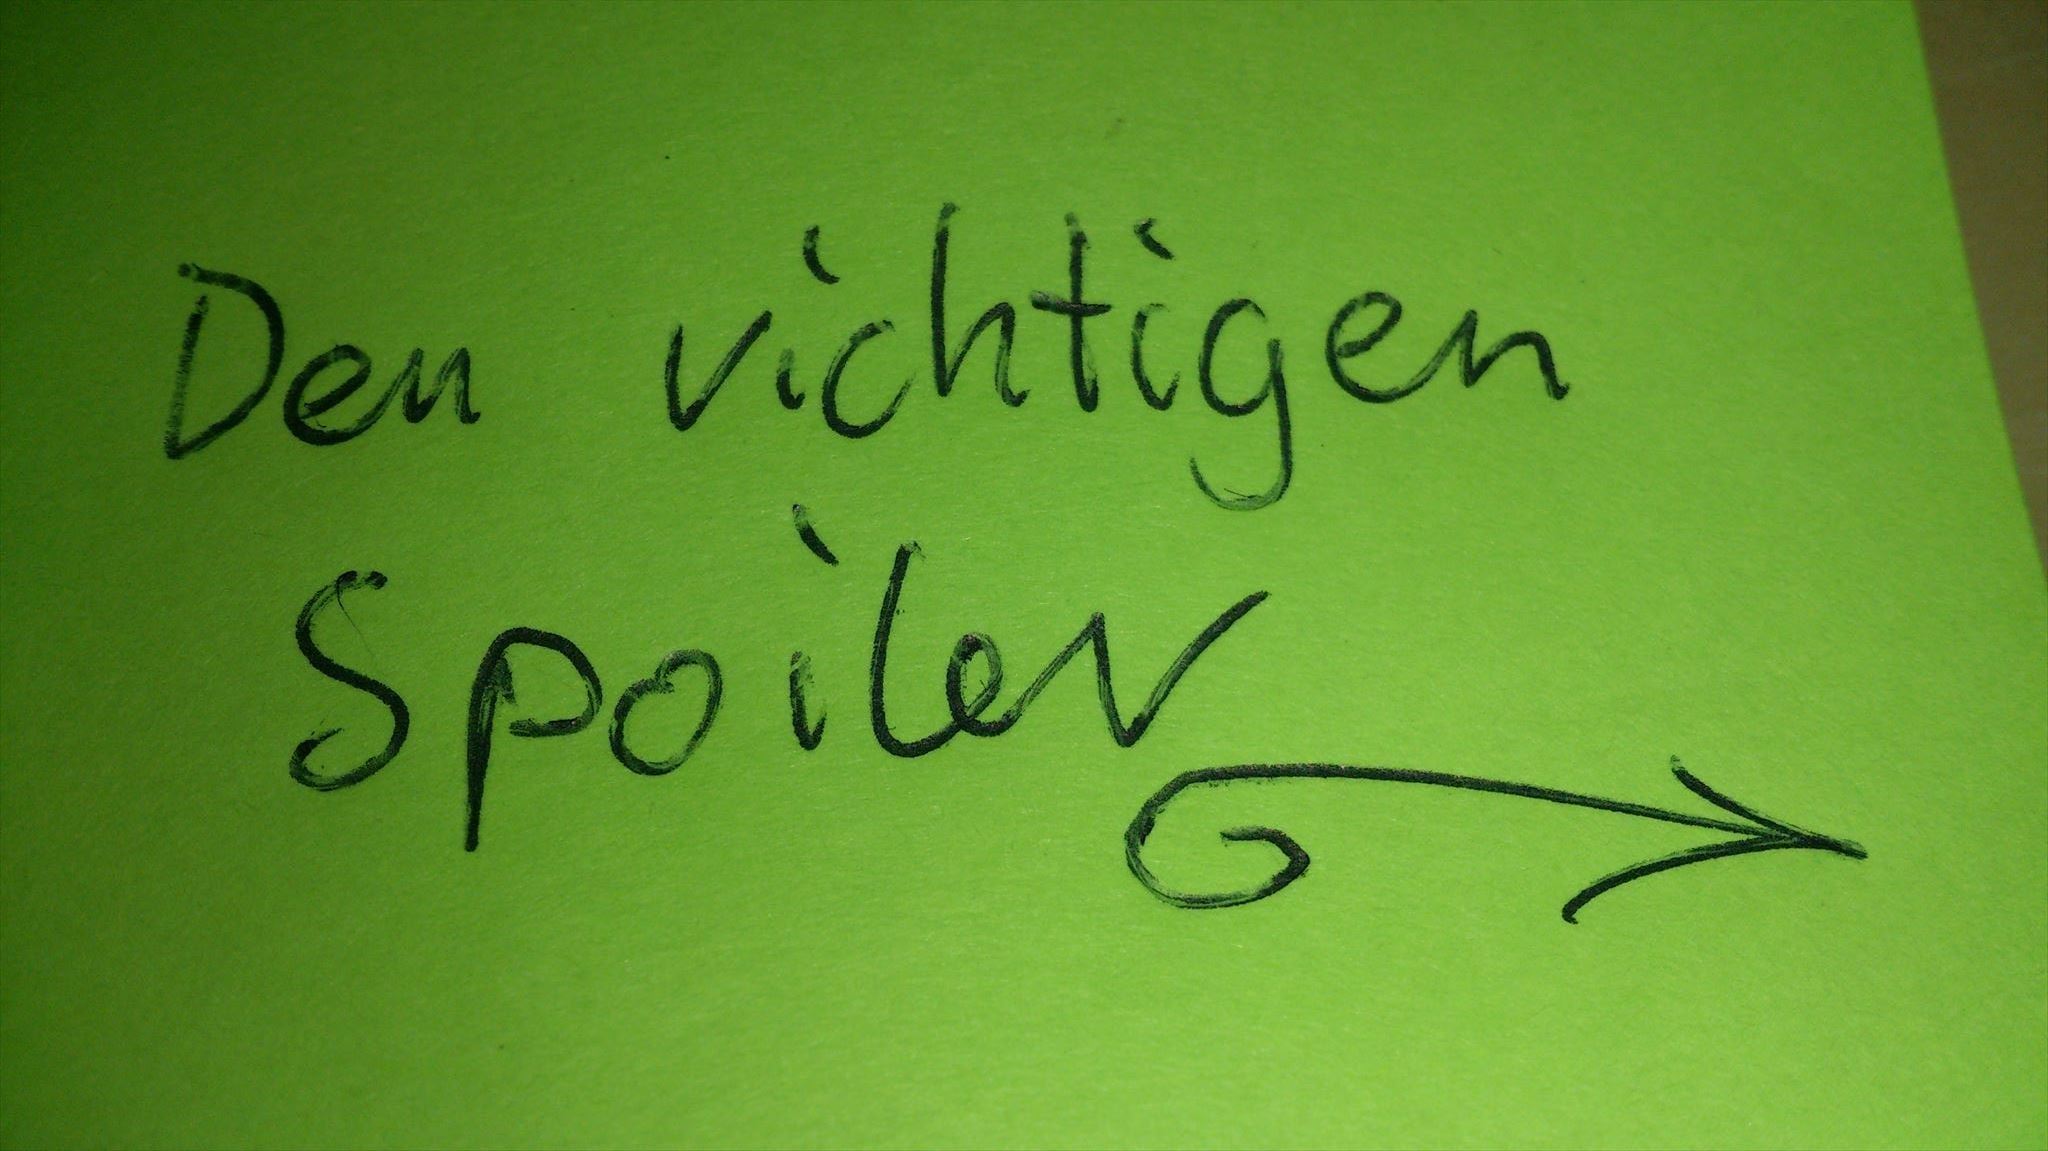 Den richtigen
Spoiler